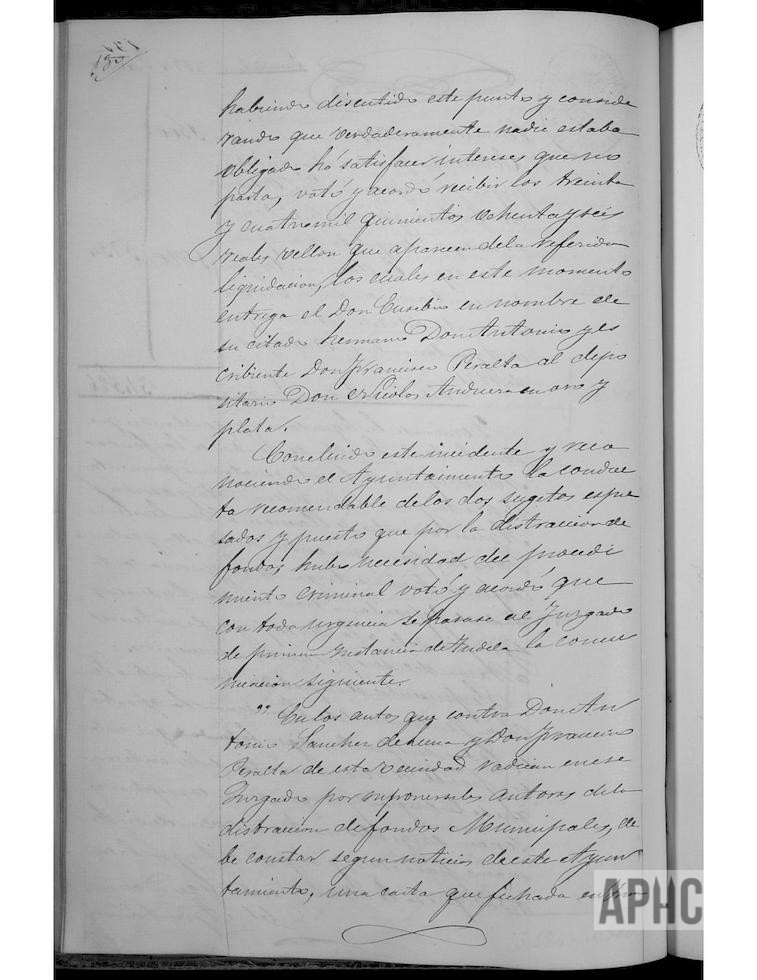 habiendo discutido este punto y conside
rando que verdaderamente nadie estaba
obligado há satisfacer intereses que no
pacta, votó y acordó recibir los treinta
y cuatro mil quinientos ochenta y seis
reales vellon que aparecen de la referida
liquidacion, los cuales en este momento
entrega el Don Eusebio en nombre de
su citado hermano Don Antonio y es
cribiente Don Francisco Peralta al depo
sitario Don Nicolas Andueza en oro y
plata.
Concluido este incidente y reco
nociendo el Ayuntamiento la conduc
ta recomendable de los dos sugetos espre
sados y puesto que por la distraccion de
fondos, hubo necesidad del procedi
miento criminal votó y acordó que
con toda urgencia se pasase al Juzgado
de primera Instancia de Tudela la comu
nicacion siguiente.
"En los autos que contra Don An
tonio Sanchez de Luna y Don Francisco
Peralta de esta vecindad radican en ese
Juzgado por suponerseles autores de la
distraccion de fondos Municipales, de
be constar segun noticias de este Ayun
tamiento, una carta que fechada en
APHC